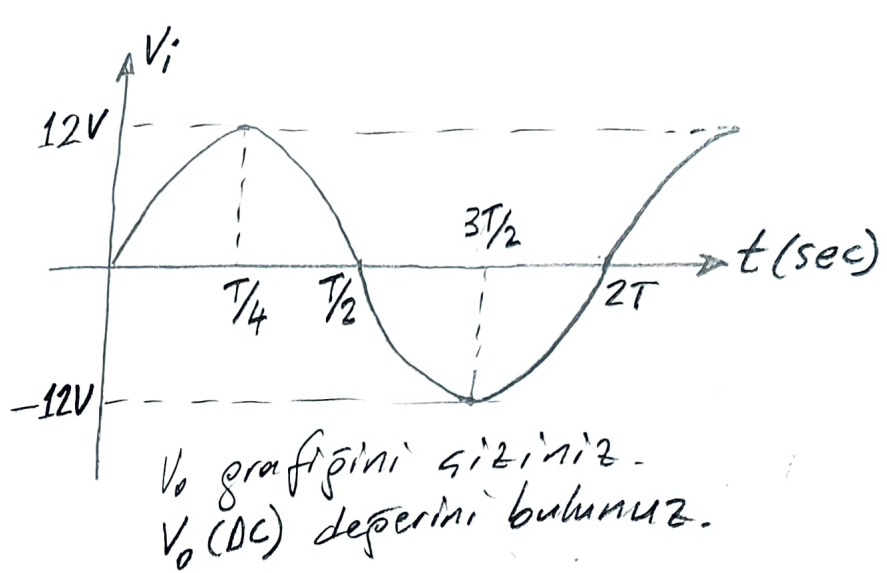 Vi
12V
3T/2
t (sec)
T/4
T/2
2T
-12V
Vo grafiğini çiziniz.
Vo (DC) değerini bulunuz.